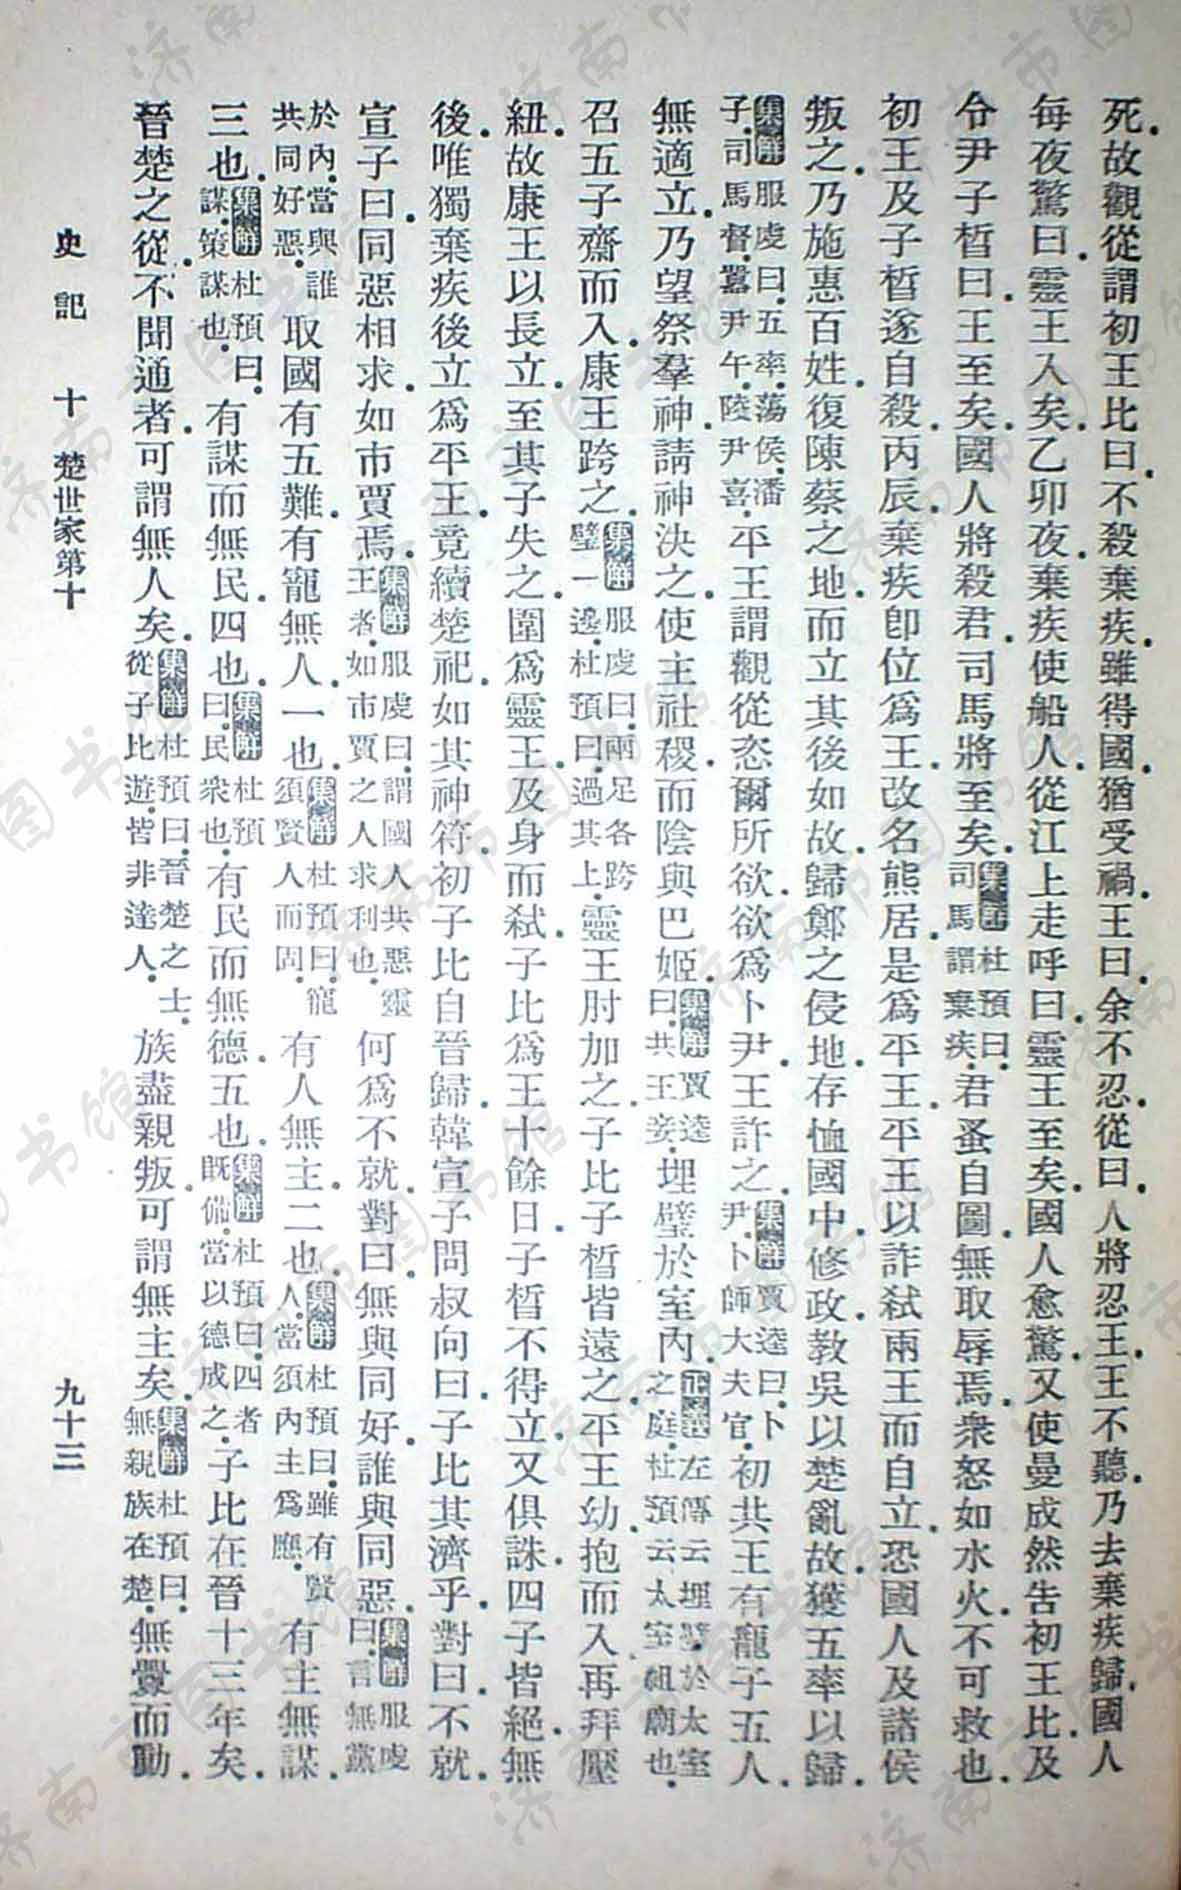 死．故觀從謂初王比曰．不殺棄疾．雖得國．猶受禍．王曰．余不忍．從曰．人將忍王．王不聽．乃去．棄疾歸．國人
每夜驚曰．靈王入矣．乙卯夜．棄疾使船人．從江上走呼曰．靈王至矣．國人愈驚．又使曼成然告初王比．及
令尹子晳曰．王至矣．國人將殺君．司馬將至矣．集解杜預曰．司馬謂棄疾．君蚤自圖．無取辱焉．衆怒如水火．不可救也．
初王及子晳遂自殺．丙辰．棄疾卽位爲王．改名熊居．是爲平王．平王以詐弒兩王而自立．恐國人及諸侯
叛之．乃施惠百姓．復陳蔡之地．而立其後如故．歸鄭之侵地．存恤國中．修政敎．吳以楚亂故．獲五率以歸．
集解服虔曰．五率．蕩侯．潘子．司馬督．囂尹午．陵尹喜．平王謂觀從．恣爾所欲．欲爲卜尹．王許之．集解賈逵曰．卜尹．卜師．大夫官．初共王有寵子五人．
無適立．乃望祭羣神．請神決之．使主社稷．而陰與巴姬．集解賈逵曰．共王妾．埋璧於室內．正義左傳云．埋璧於太室之庭．杜預云．太室祖廟也．
召五子齋而入．康王跨之．集解服虔曰．兩足各跨璧一邊．杜預曰．過其上．靈王肘加之．子比子晳皆遠之．平王幼．抱而入．再拜壓
紐．故康王以長立．至其子失之．圍爲靈王．及身而弒．子比爲王十餘日．子晳不得立．又俱誅．四子皆絕無
後．唯獨棄疾後立爲平王．竟續楚祀．如其神符．初子比自晉歸．韓宣子問叔向曰．子比其濟乎．對曰．不就．
宣子曰．同惡相求．如市賈焉．集解服虔曰．謂國人共惡靈王者．如市賈之人求利也．何爲不就．對曰．無與同好．誰與同惡．集解服虔曰．言無黨
於內．當與誰共同好惡．取國有五難．有寵無人．一也．集解杜預曰．寵須賢人而固．有人無主．二也．集解杜預曰．雖有賢人．當須內主爲應．有主無謀．
三也．集解杜預曰．謀．策謀也．有謀而無民．四也．集解杜預曰．民衆也．有民而無德．五也．集解杜預曰．四者旣備．當以德成之．子比在晉十三年矣．
晉楚之從．不聞通者．可謂無人矣．集解杜預曰．晉楚之士．從子比遊．皆非達人．族盡親叛．可謂無主矣．集解杜預曰．無親族在楚．無釁而動．
史記 十 楚世家第十 九十三